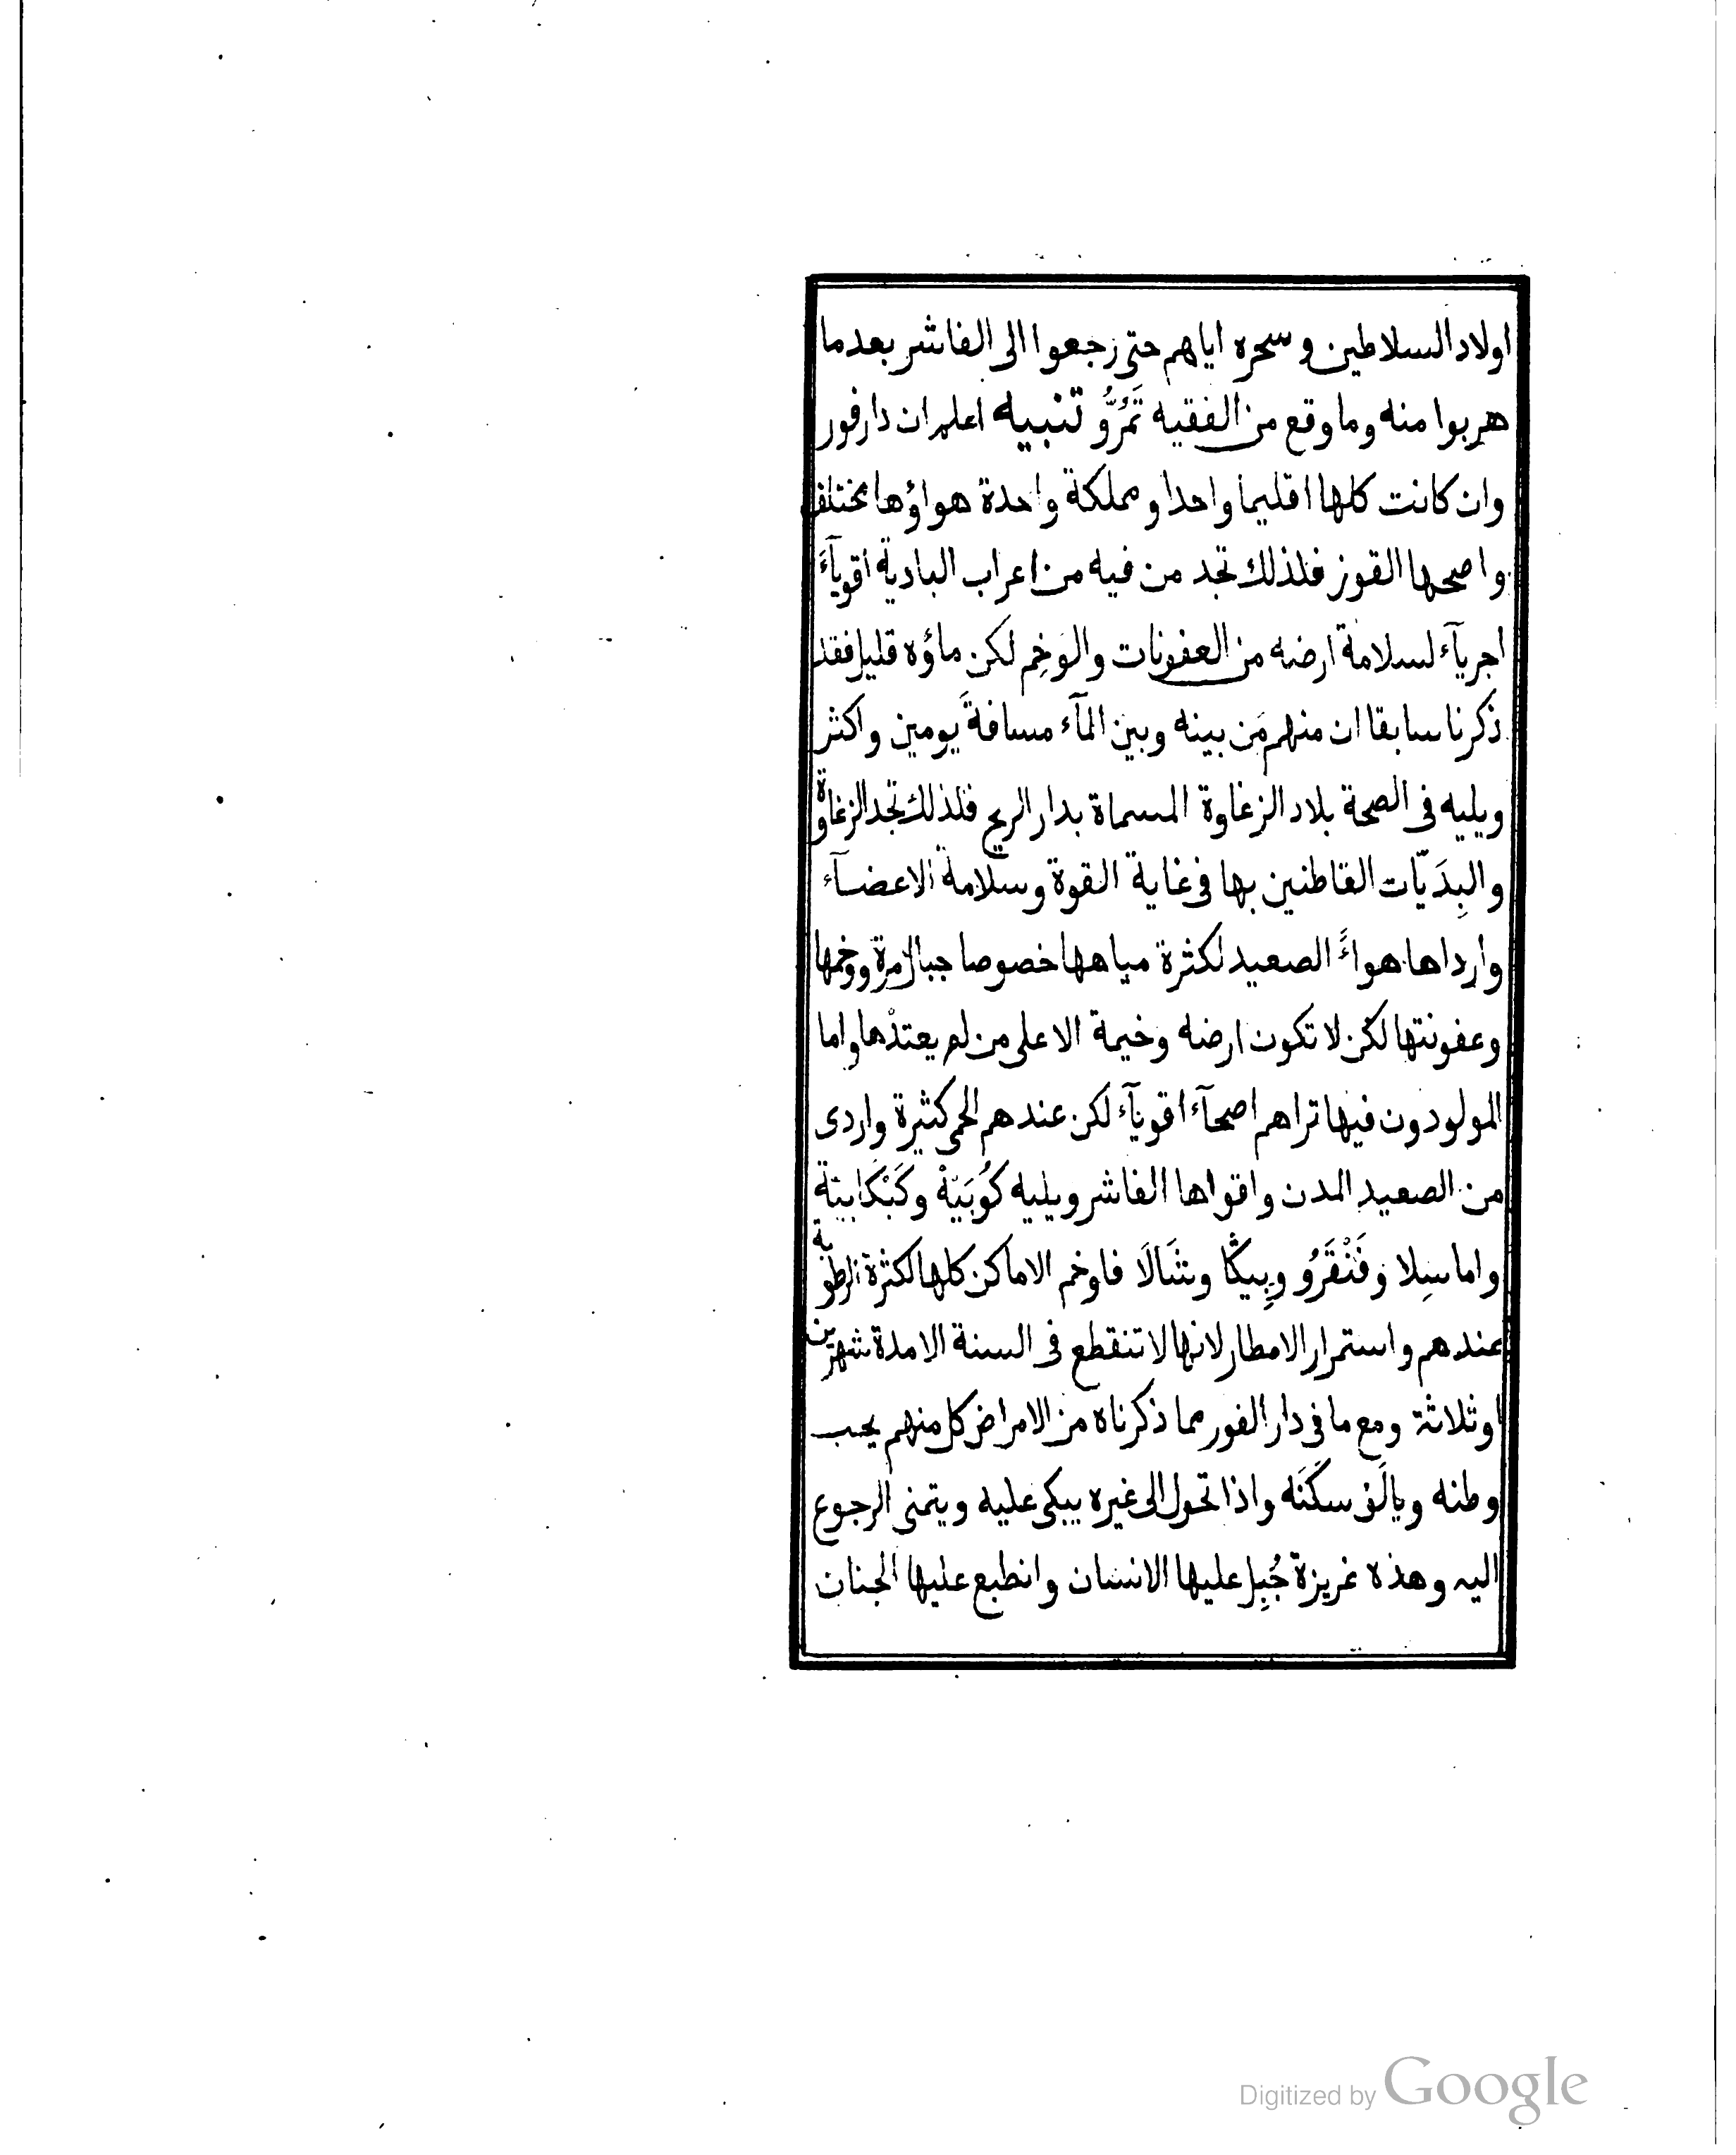 اولاد السلاطين وسحره اياهم حتى رجعوا الى الفاشر بعد ما
هربوا منه وما وقع من الفقيه تَمُرُّو تنبيه اعلم ان دارفور
وان كانت كلها اقليما واحدا ومملكة واحدة هواؤها مختلف
واصحها القوز فلذلك تجد من فيه من اعراب البادية اقويآءَ
اجريآء لسلامة ارضه من العفونات والوَخِم لكن ماؤه قليل فقد
ذكرنا سابقا ان منهم مَن بينه وبين المآء مسافةَ يومين واكثر
ويليه فى الصحة بلاد الزغاوة المسماة بدار الريح فلذلك تجد الزغاوة
والبِدَيّات القاطنين بها فى غاية القوة وسلامة الاعضآء
وارداها هواءً الصعيد لكثرة مياهها خصوصا جبال مرة ووخمها
وعفونتها لكن لا تكون ارضه وخيمة الا على من لم يعتدْها واما
المولودون فيها تراهم اصحآء اقويآء لكن عندهم الحمى كثيرة واردى
من الصعيد المدن واقواها الفاشر ويليه كُوبَيْة وكَبْكَابِيّة
واما سِلا وفَنْقَرُو وبِيݣا وشَالَا فاوخم الاماكن كلها لكثرة الرطوبة
عندهم واستمرار الامطار لانها لا تنقطع فى السنة الا مدة شهرين
او ثلاثة ومع ما فى دار الفور مما ذكرناه من الامراض كل منهم يحب
وطنه ويالَف سكَنَه واذا تحول الى غيره يبكى عليه ويتمنى الرجوع
اليه وهذه غريزة جُبِل عليها الانسان وانطبع عليها الجنان
Digitized by Google